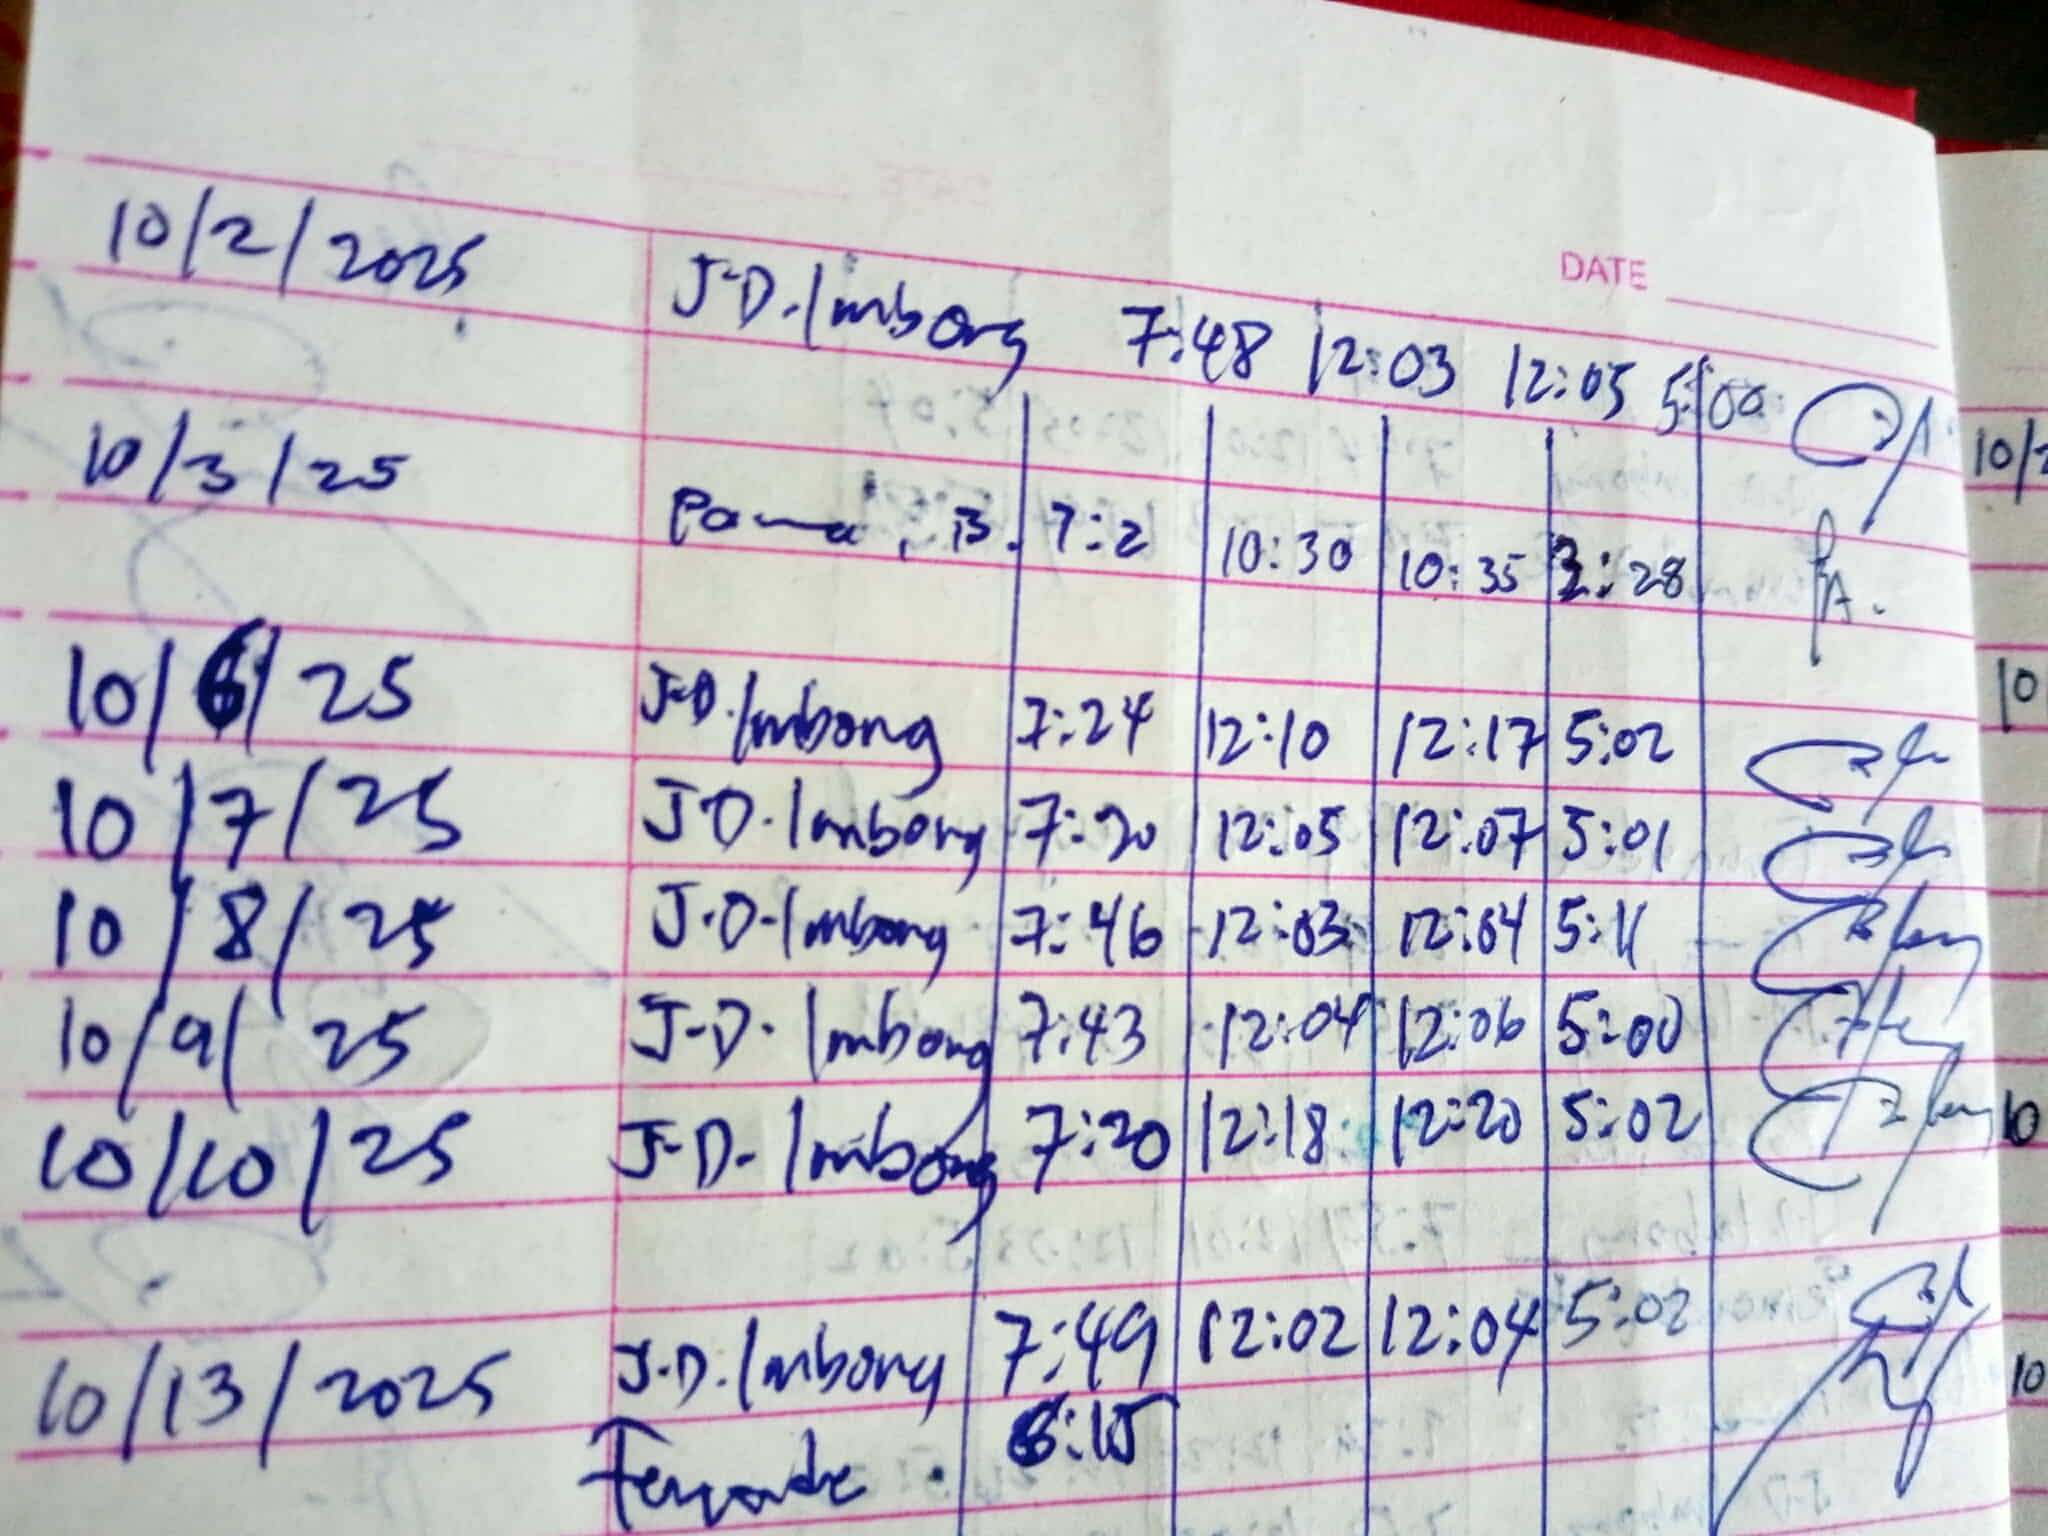 DATE
10/2/2025 J-D. Imbong 7:48 12:03 12:05 5:00
10/3/25 Pama, B. 7:2 10:30 10:35 3:28
10/6/25 J-D. Imbong 7:24 12:10 12:17 5:02
10/7/25 J-D. Imbong 7:20 12:05 12:07 5:01
10/8/25 J-D-Imbong 7:46 12:03 12:04 5:11
10/9/25 J-D. Imbong 7:43 12:04 12:06 5:00
10/10/25 J-D- Imbong 7:20 12:18 12:20 5:02
10/13/2025 J.D. Imbong 7:49 12:02 12:04 5:02
6:15
10
10
10